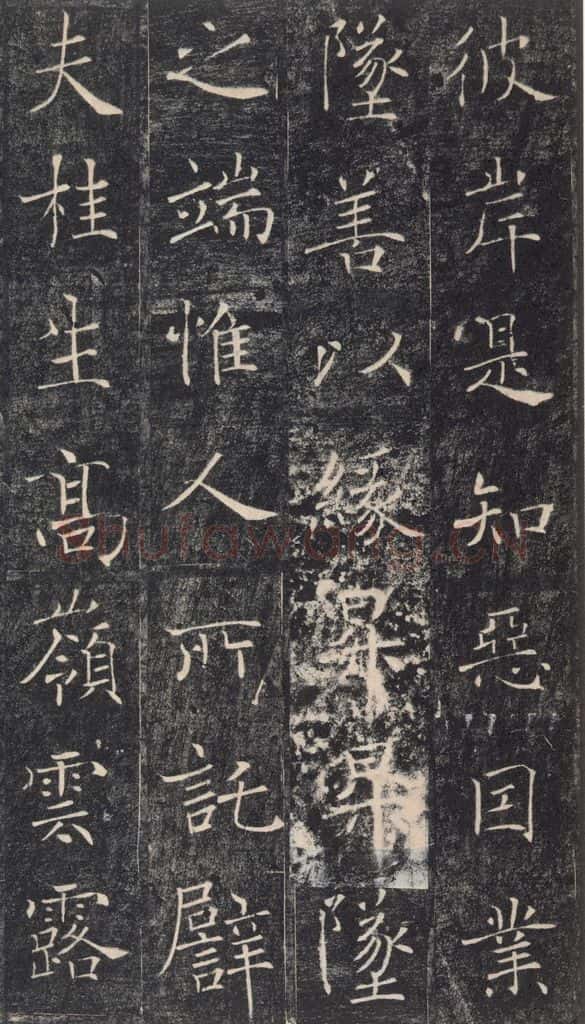 彼岸是知惡囙業
墜善以緣昇昇墜
之端惟人所託譬
夫桂生髙嶺雲露
Shufawang.cn